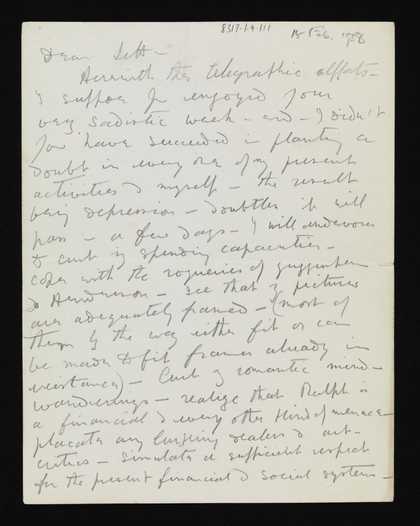 8317.1.4.111
15 Feb.
Dear
Herewith the telegraphic effects -
I suppose you enjoyed your
very sadistic week - end - I didn't
You have succeeded in planting a
doubt in every one of my present
activities & myself - the result
being depression - doubtless it will
pass - a few days - I will endeavour
to curb my spending capacities -
cope with the rogueries of Guggenheim
& Henderson - see that my pictures
are adequately framed - (most of
them by the way either fit or can
be made to fit frames already in
existance) - Curb my romantic mind -
wanderings - realize that Ralph is
a financial & every other kind of menace -
placate any lurking dealers & art-
critics - simulate a sufficient respect
for the present financial & social systems -